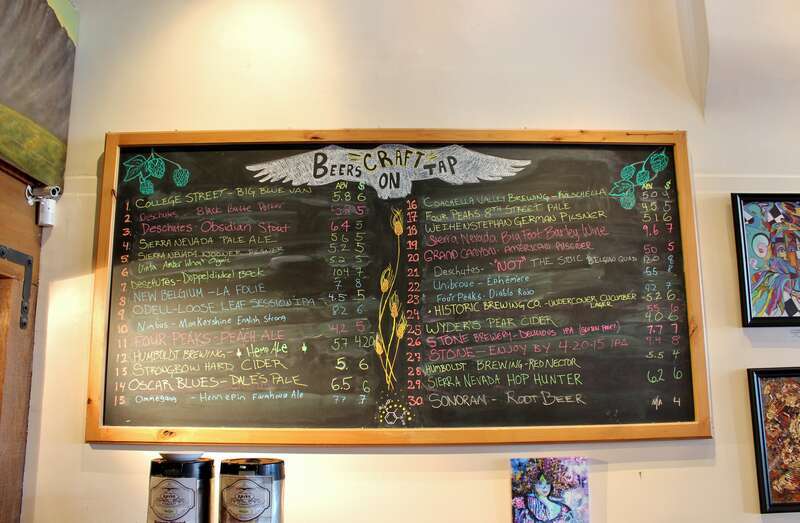 BEERS CRAFT ON TAP
ABV $
1. COLLEGE STREET - BIG BLUE VAN 5.8 6
2. Deschutes - Black Butte Porter 5
3. Deschutes - Obsidian Stout 6.4 5
4. SIERRA NEVADA PALE ALE 5.6 5
5. SIERRA NEVADA 5.2 5
6. Amber 5.2 5
7. DESCHUTES - Doppel
8. NEW BELGIUM - LA FOLIE 7 8
9. ODELL - LOOSE LEAF SESSION IPA 4.5 5
10. Nimbus - Monkeyshine English Strong 8.2 6
11. FOUR PEAKS - PEACH ALE 4.2 5
12. HUMBOLDT BREWING - Hemp Ale 5.7 4.20
13. STRONGBOW HARD CIDER 5. 6
14. OSCAR BLUES - DALE'S PALE 6.5 6
15. Ommegang - Hennepin Farmhouse Ale 7.7 7
ABV $
16 COACHELLA VALLEY BREWING - KOLSCHELLA 5.0
17 FOUR PEAKS 8TH STREET PALE 4.5
18 WEIHENSTEPHAN GERMAN PILSNER 5.1 6
19 Sierra Nevada Big Foot Barley Wine 9.6 7
20 GRAND CANYON - AMERICAN PILSNER
21 DESCHUTES - "NOT" THE STOIC BELGIAN QUAD
22 Unibroue - Ephemere
23 Four Peaks - Diablo Rojo
24 HISTORIC BREWING CO. - UNDERCOVER CUCUMBER LAGER
25 WYDER'S PEAR CIDER
26 STONE BREWERY - DELICIOUS IPA 7.7 7
27 STONE - ENJOY BY 4.20.15 IPA 8
28 HUMBOLDT BREWING - RED NECTAR 5.5
29 SIERRA NEVADA HOP HUNTER 6.2 6
30 SONORAN - ROOT BEER N/A 4